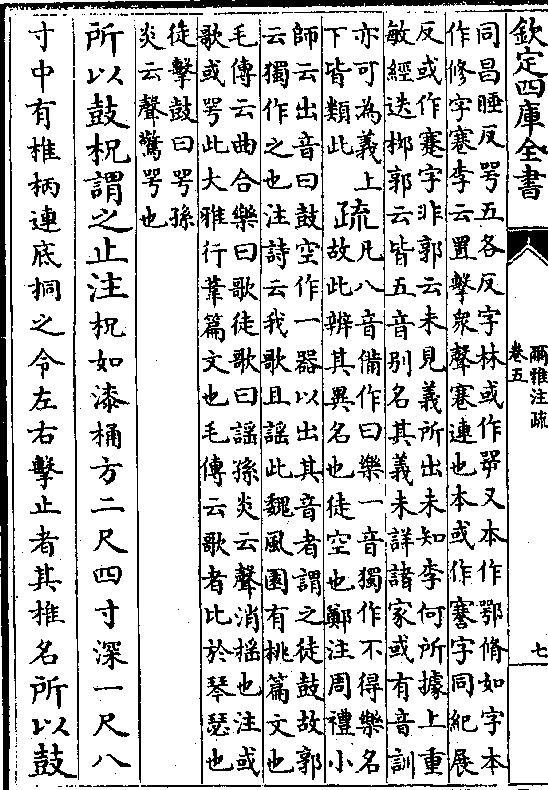 欽定四庫全書
爾雅注疏
卷五
七
同昌睡反咢五各反字林或作㗁又本作鄂脩如字本
作修字寋李云置擊衆聲寋連也本或作蹇字同紀展
反或作蹇字非郭云未見義所出未知李何所據上重
敏經迭桞郭云皆五音別名其義未詳諸家或有音訓
亦可為義上
下皆類此
疏
凡八音備作曰樂一音獨作不得樂名
故此辨其異名也徒空也鄭注周禮小
師云出音曰鼓空作一器以出其音者謂之徒鼓故郭
云獨作之也注詩云我歌且謡此魏風園有桃篇文也
毛傳云曲合樂曰歌徒歌曰謡孫炎云聲消揺也注或
歌或咢此大雅行葦篇文也毛傳云歌者比於琴瑟也
徒擊鼓曰咢孫
炎云聲驚咢也
所以鼓柷謂之止注柷如漆桶方二尺四寸深一尺八
寸中有椎柄連底挏之令左右擊止者其椎名所以鼓